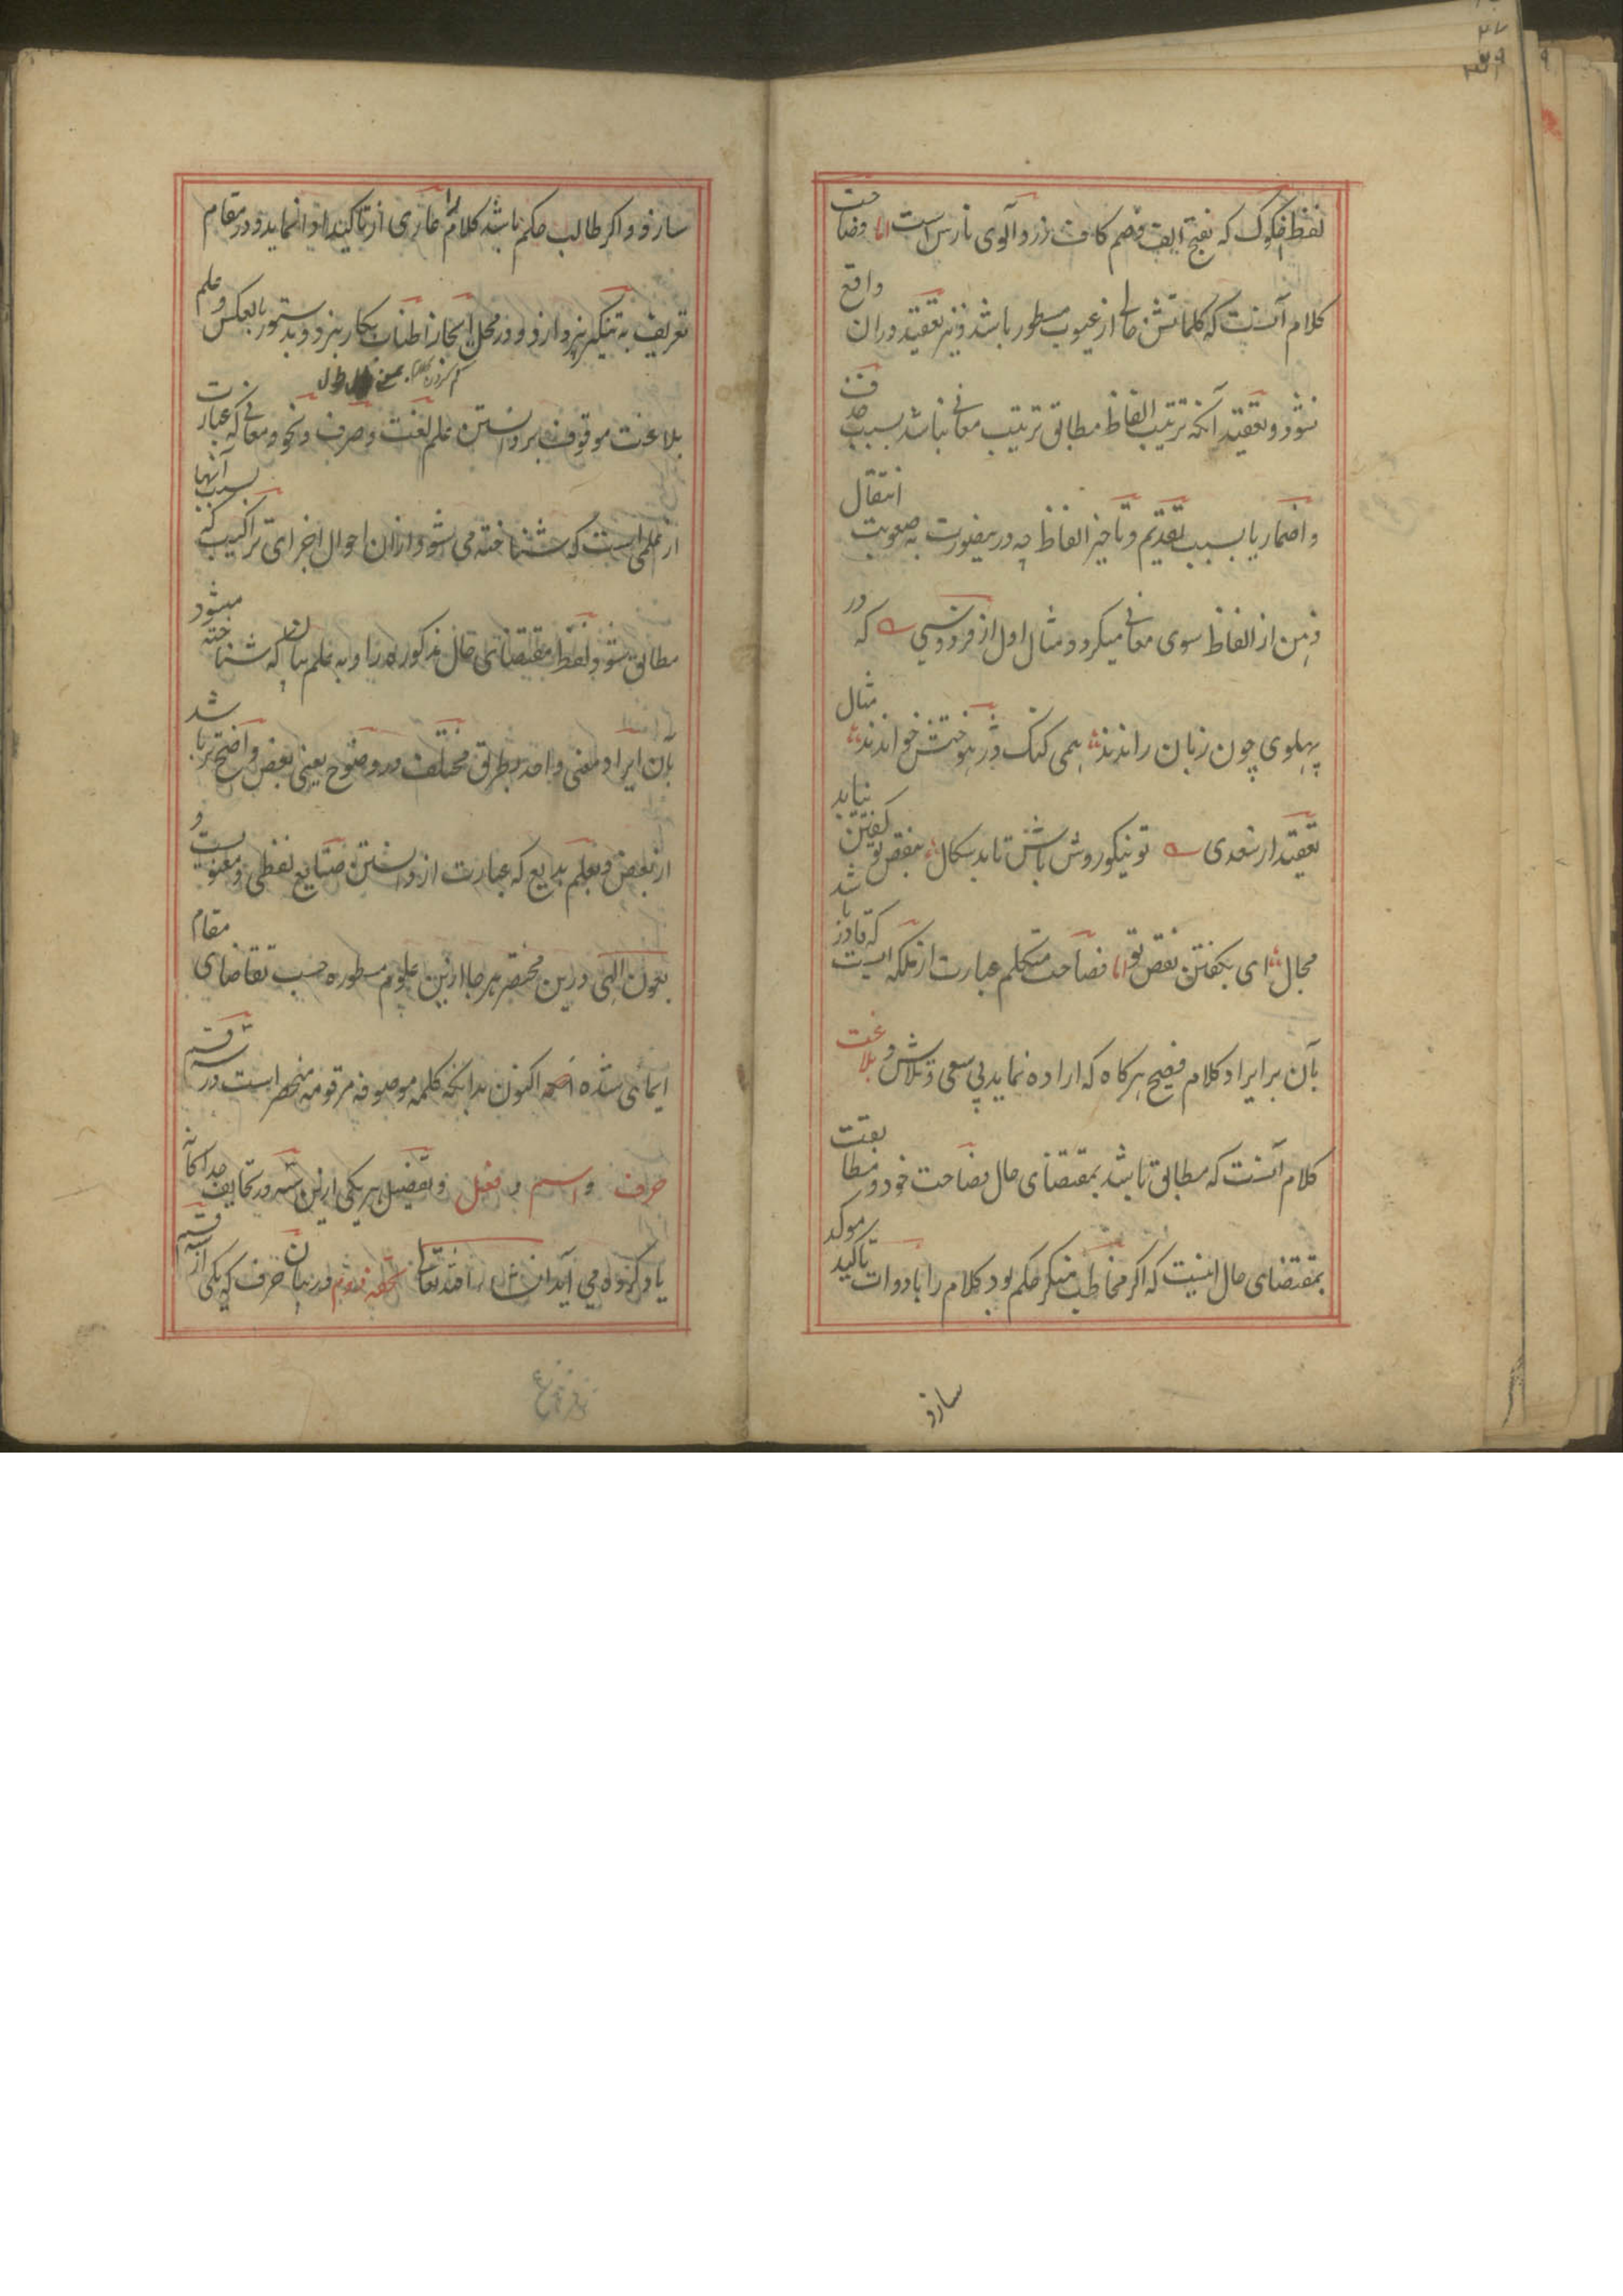 لفظ فکوک که بفتح الف وضم کاف زردآلوی نارس است اما فصاحت
کلام آنست که کلماتش خالی از عیوب مسطور باشد و نیز تعقید در ان واقع
نشود و تعقید آنکه ترتیب الفاظ مطابق ترتیب معانی نباشد بسبب حذف
و اضمار یا بسبب تقدیم و تاخیر الفاظ چه درینصورت به صعوبت انتقال
ذهن از الفاظ سوی معانی میگردد مثال اول از فردوسی که در
پهلوی چون زبان راندند همی کنک دژ خواندند مثال
تعقید از سعدی تو نیکو روش باش تا بد سکال بنقص تو گفتن نیابد
مجال ای بگفتن نقص تو اما فصاحت متکلم عبارت از ملکه ایست که قادر باشد
بآن بر ایراد کلام فصیح هرکاه که اراده نماید بی سعی و تلاش و بلاغت
کلام آنست که مطابق باشد بمقتضای حال فصاحت خود و مطابقت
بمقتضای حال اینست که اکر مخاطب منکر حکم بود کلام را بادوات تاکید موکد
سازد
سازد و اکر طالب حکم باشد کلام را عاری از تاکید ادا نماید و در مقام
تعریف به تنکیر نپردازد و در محل ایجاز اطناب بکار نبرد و بدستور بالعکس و علم
بلاغت موقوف بر دانستن علم لغت و صرف و نحو و معانی که عبارت
از علمی است که شناخته می شود ازان احوال اجزای ترکیب که بسبب آنها
مطابق شود لفظ مقتضای حال مذکوره را و به علم بیان که شناخته میشود
بآن ایراد معنی واحد بطرق مختلف در وضوح یعنی بعض واضح تر باشد
از بعض و بعلم بدایع که عبارت از دانستن صنایع لفظی و معنویست و
بعون الهی درین مختصر هر جا ازین علوم مسطوره حسب تقاضای مقام
ایمای شده اکنون بدانکه کلمه موصوفه مرقومه منحصر است در سه قسم
حرف و اسم و فعل و تفصیل هر یکی ازین سه در تحایف جداکانه
یاد کرده می آید ان شاء الله تعالی تحفه دوم در بیان حرف که یکی از سه قسم